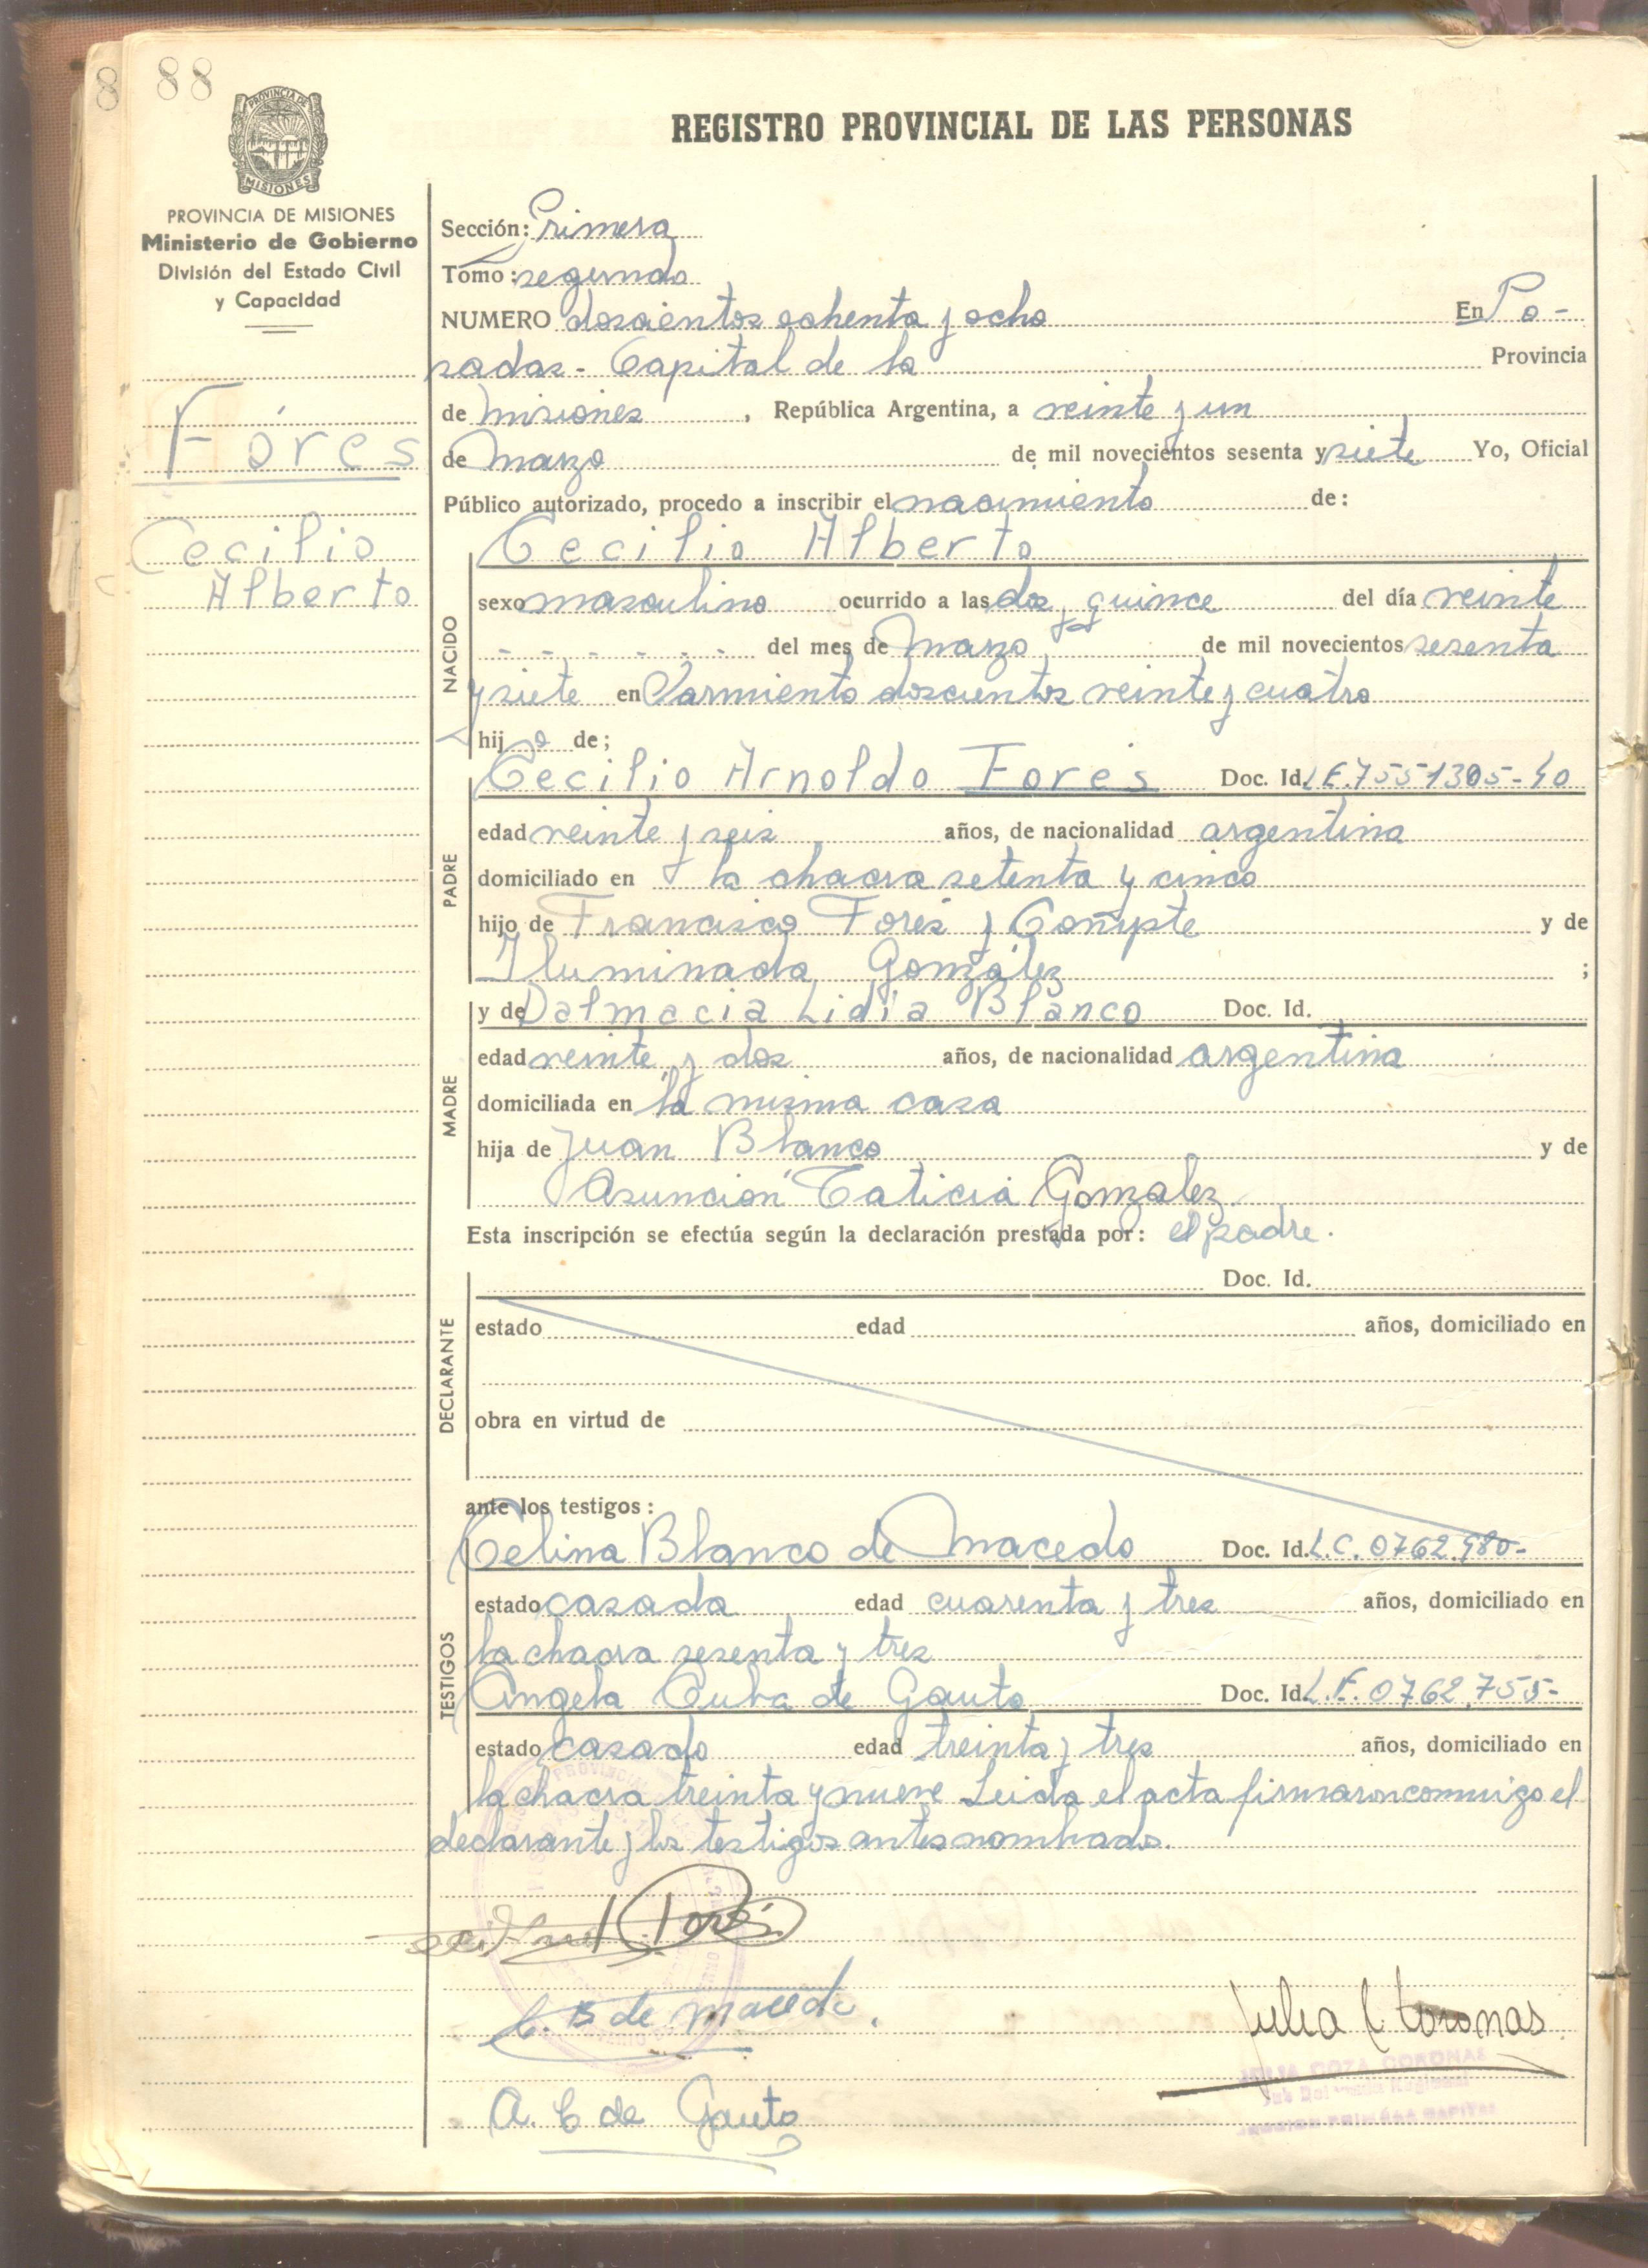 8 88
PROVINCIA DE
MISIONES
REGISTRO PROVINCIAL DE LAS PERSONAS
PROVINCIA DE MISIONES
Ministerio de Gobierno
División del Estado Civil
y Capacidad
Fóres
Cecilio
Alberto
Sección: Primera
Tomo: segundo
NUMERO doscientos ochenta y ocho En Po-
sadas - Capital de la Provincia
de Misiones, República Argentina, a veinte y un
de Marzo de mil novecientos sesenta y siete Yo, Oficial
Público autorizado, procedo a inscribir el nacimiento de:
Cecilio Alberto
NACIDO
sexo masculino ocurrido a las dos y quince del día veinte
- - - - - - - del mes de Marzo de mil novecientos sesenta
y siete en Sarmiento doscientos veinte y cuatro
hijo de;
PADRE
Cecilio Arnoldo Fores Doc. Id. L.E. 7551305-40
edad veinte y seis años, de nacionalidad argentina
domiciliado en la chacra setenta y cinco
hijo de Francisco Forés y Compte y de
Iluminada González ;
MADRE
y de Dalmacia Lidia Blanco Doc. Id.
edad veinte y dos años, de nacionalidad argentina
domiciliada en la misma casa
hija de Juan Blanco y de
Asunción González
Esta inscripción se efectúa según la declaración prestada por: el padre.
DECLARANTE
Doc. Id.
estado edad años, domiciliado en
obra en virtud de
ante los testigos:
TESTIGOS
Celina Blanco de Macedo Doc. Id. L.C. 0762.980-
estado casada edad cuarenta y tres años, domiciliado en
la chacra sesenta y tres
Angela de Gauto Doc. Id. L.E. 0762,755-
estado casado edad treinta y tres años, domiciliado en
la chacra treinta y nueve Leida el acta firmaron conmigo el
declarante y los testigos antes nombrados.
Forés
C. B de Macedo.
Julia C Coronas
A. C de Gauto
JULIA COZA CORONAS